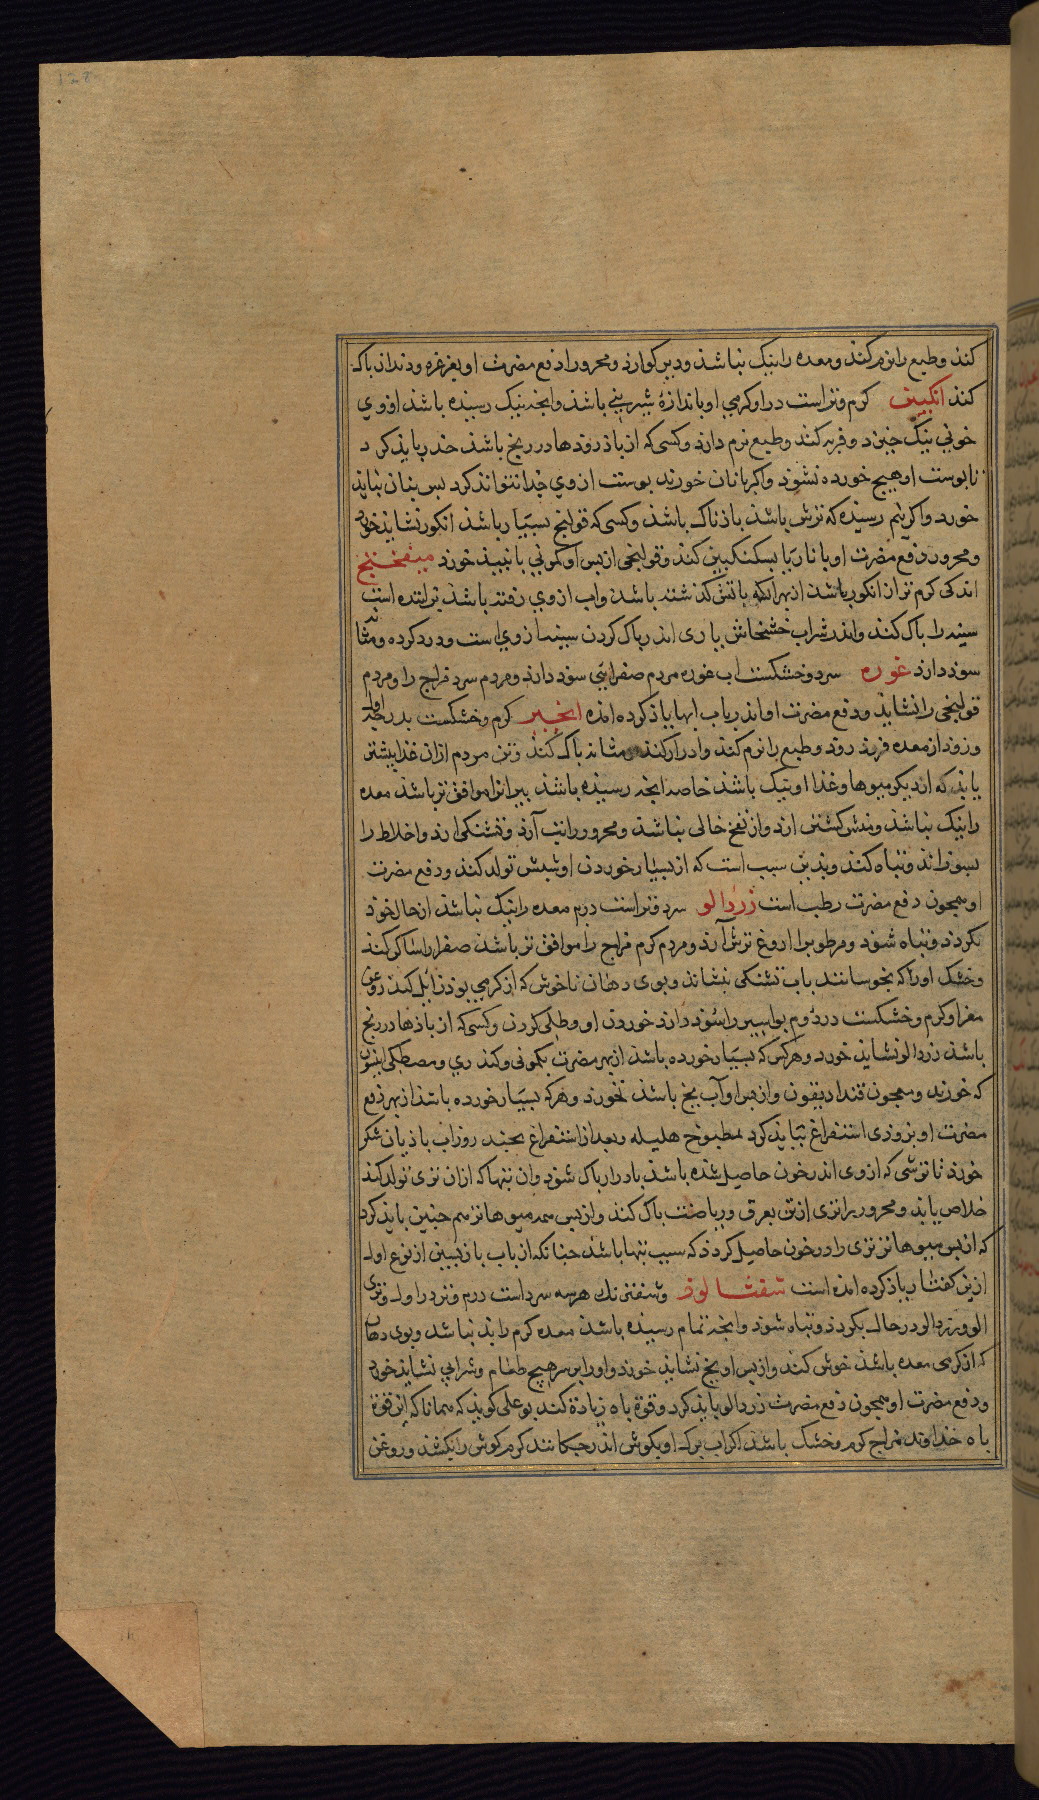 کند و طبع را نرم کند و معده را نیک نباشد و دیر کوارد و محرور را دفع مضرت او بغرغره و دندان باک
کند انکبین کرم و تر است در او کرمی او باندازهٔ شیرینی باشد وانچه نیک رسیده باشد ازوی
خونی نیک خیزد و فربه کند و طبع نرم دارد و کسی که از باذ رودها در رنج باشد حذر باید کرد
تا بوست او هیچ خورده نشود و اکر با نان خورند بوست از وی جدا نتواند کرد بس بنان نباید
خورد و اکر نیم رسیده که ترش باشد باذناک باشد و کسی که قولنج بسیار باشد انکور نشاید خورد
و محرور دفع مضرت او با نار یا بسکنکبین کند و قولنجی از بس او کمونی یا نبیذ خورد میفختج
اندکی کرم تر از انکور باشد از بهر انکه باتش کذشته باشد واب از وی رفته باشد
سینه را باک کند واندر شراب خشخاش یاری اندر باک کردن سینه ازوی است و درد کرده و مثانه
سود دارد غوره سرد و خشکست اب غوره مردم صفرایی سود دارد و مردم سرد مزاج را و مردم
قولنجی را نشاید و دفع مضرت او اندر باب ابها یاذ کرده امده انجیر کرم و خشکست بدرجه اول
و زود از معده فرود رود و طبع را نرم کند و ادرار کند مثانه باک کند و تن مردم ازان غذا بیشتر
یابد که از دیکر میوها و غذا او نیک باشد خاصه انچه رسیده باشد بیرانرا موافق تر باشد معده
را نیک نباشد و منش کشتن ارد واز نفخ خالی نباشد و محرور را تب آرد و تشنکی ارد و اخلاط را
بسوزاند و تباه کند و بذین سبب است که از بسیار خوردن او شبش تولد کند و دفع مضرت
او همجون دفع مضرت رطب است زردالو سرد و تر است درم معده را نیک نباشد از حال خود
بکردد و تباه شود و مرطوبرا اروغ ترش آرد و مردم کرم مزاج را موافق تر باشد صفرا را ساکن کند
و خشک او را که بخوسانند باب تشنکی بنشاند و بوی دهان ناخوش که از کرمی بوذ زایل کند روغن
مغز او کرم و خشکست در دوم بواسیر را سود دارد خوردن او و طلی کردن و کسی که از باذها در رنج
باشد زردالو نشاید خورد و هر کس که بسیار خورده باشد از بهر مضرت کمونی و کندری و مصطکی انیسون
که خورند و معجون قنداد یقون واز بس او آب یخ باشد نخورد و هر که بسیار خورده باشد از بهر دفع
مضرت او بزوزدی استفراغ بباید کرد بمطبوخ هلیله و بعد از استفراغ بجند روز اب باذیان شکر
خورد تا ترشی که ازوی اندر خون حاصل شده باشد باذرار باک شود وان تبها که ازان تری تولد کند
خلاص یابد و محرور را تری از تن بعرق و ریاضت باک کند واز بس همه میوهاء تر هم جنین باید کرد
که از بس میوها تر تری را در خون حاصل کردد که سبب تبها باشد جنانکه از باب بازبسین از نوع اول
ازین کفتار یاذ کرده امده است شفتالوذ و شفترنک هر سه سرد است درم و تر در اول و تری
الو و زردالو در حال بکردد و تباه شود وانچه تمام رسیده باشد معده کرم را بد نباشد و بوی دهان
که از کرمی معده باشد خوش کند واز بس او یخ نشاید خورد و او را بر سر هیچ طعام و شرابی نشاید خورد
و دفع مضرت او همجون دفع مضرت زردالو باید کرد و قوة باه زیادة کند بو علی کوید که همانا که این قوة
باه خداوند مزاج کرم و خشک باشد اکر اب برک او بکوش اندر جکانند کرم کوش را بکشد و روغن